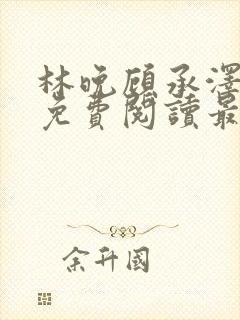 林晚顧承澤
免費閱讀最
余升國